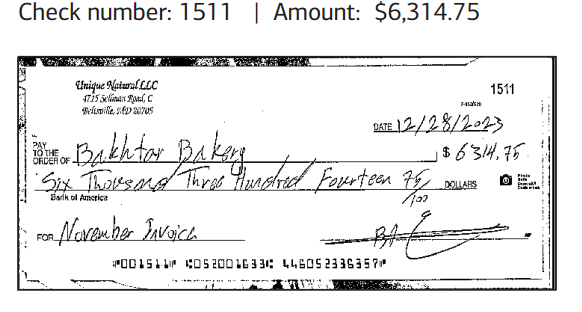 Check number: 1511 | Amount: $6,314.75
Unique Natural LLC
4715 Sellman Road, C
Beltsville, MD 20705
1511
DATE 12/28/2023
PAY
TO THE
ORDER OF Bakhtar Bakery $ 6314.75
Six Thousand Three Hundred Fourteen 75/100 DOLLARS
Bank of America
FOR November Invoice
⑈001511⑈ ⑆052001633⑆ 446052336357⑈